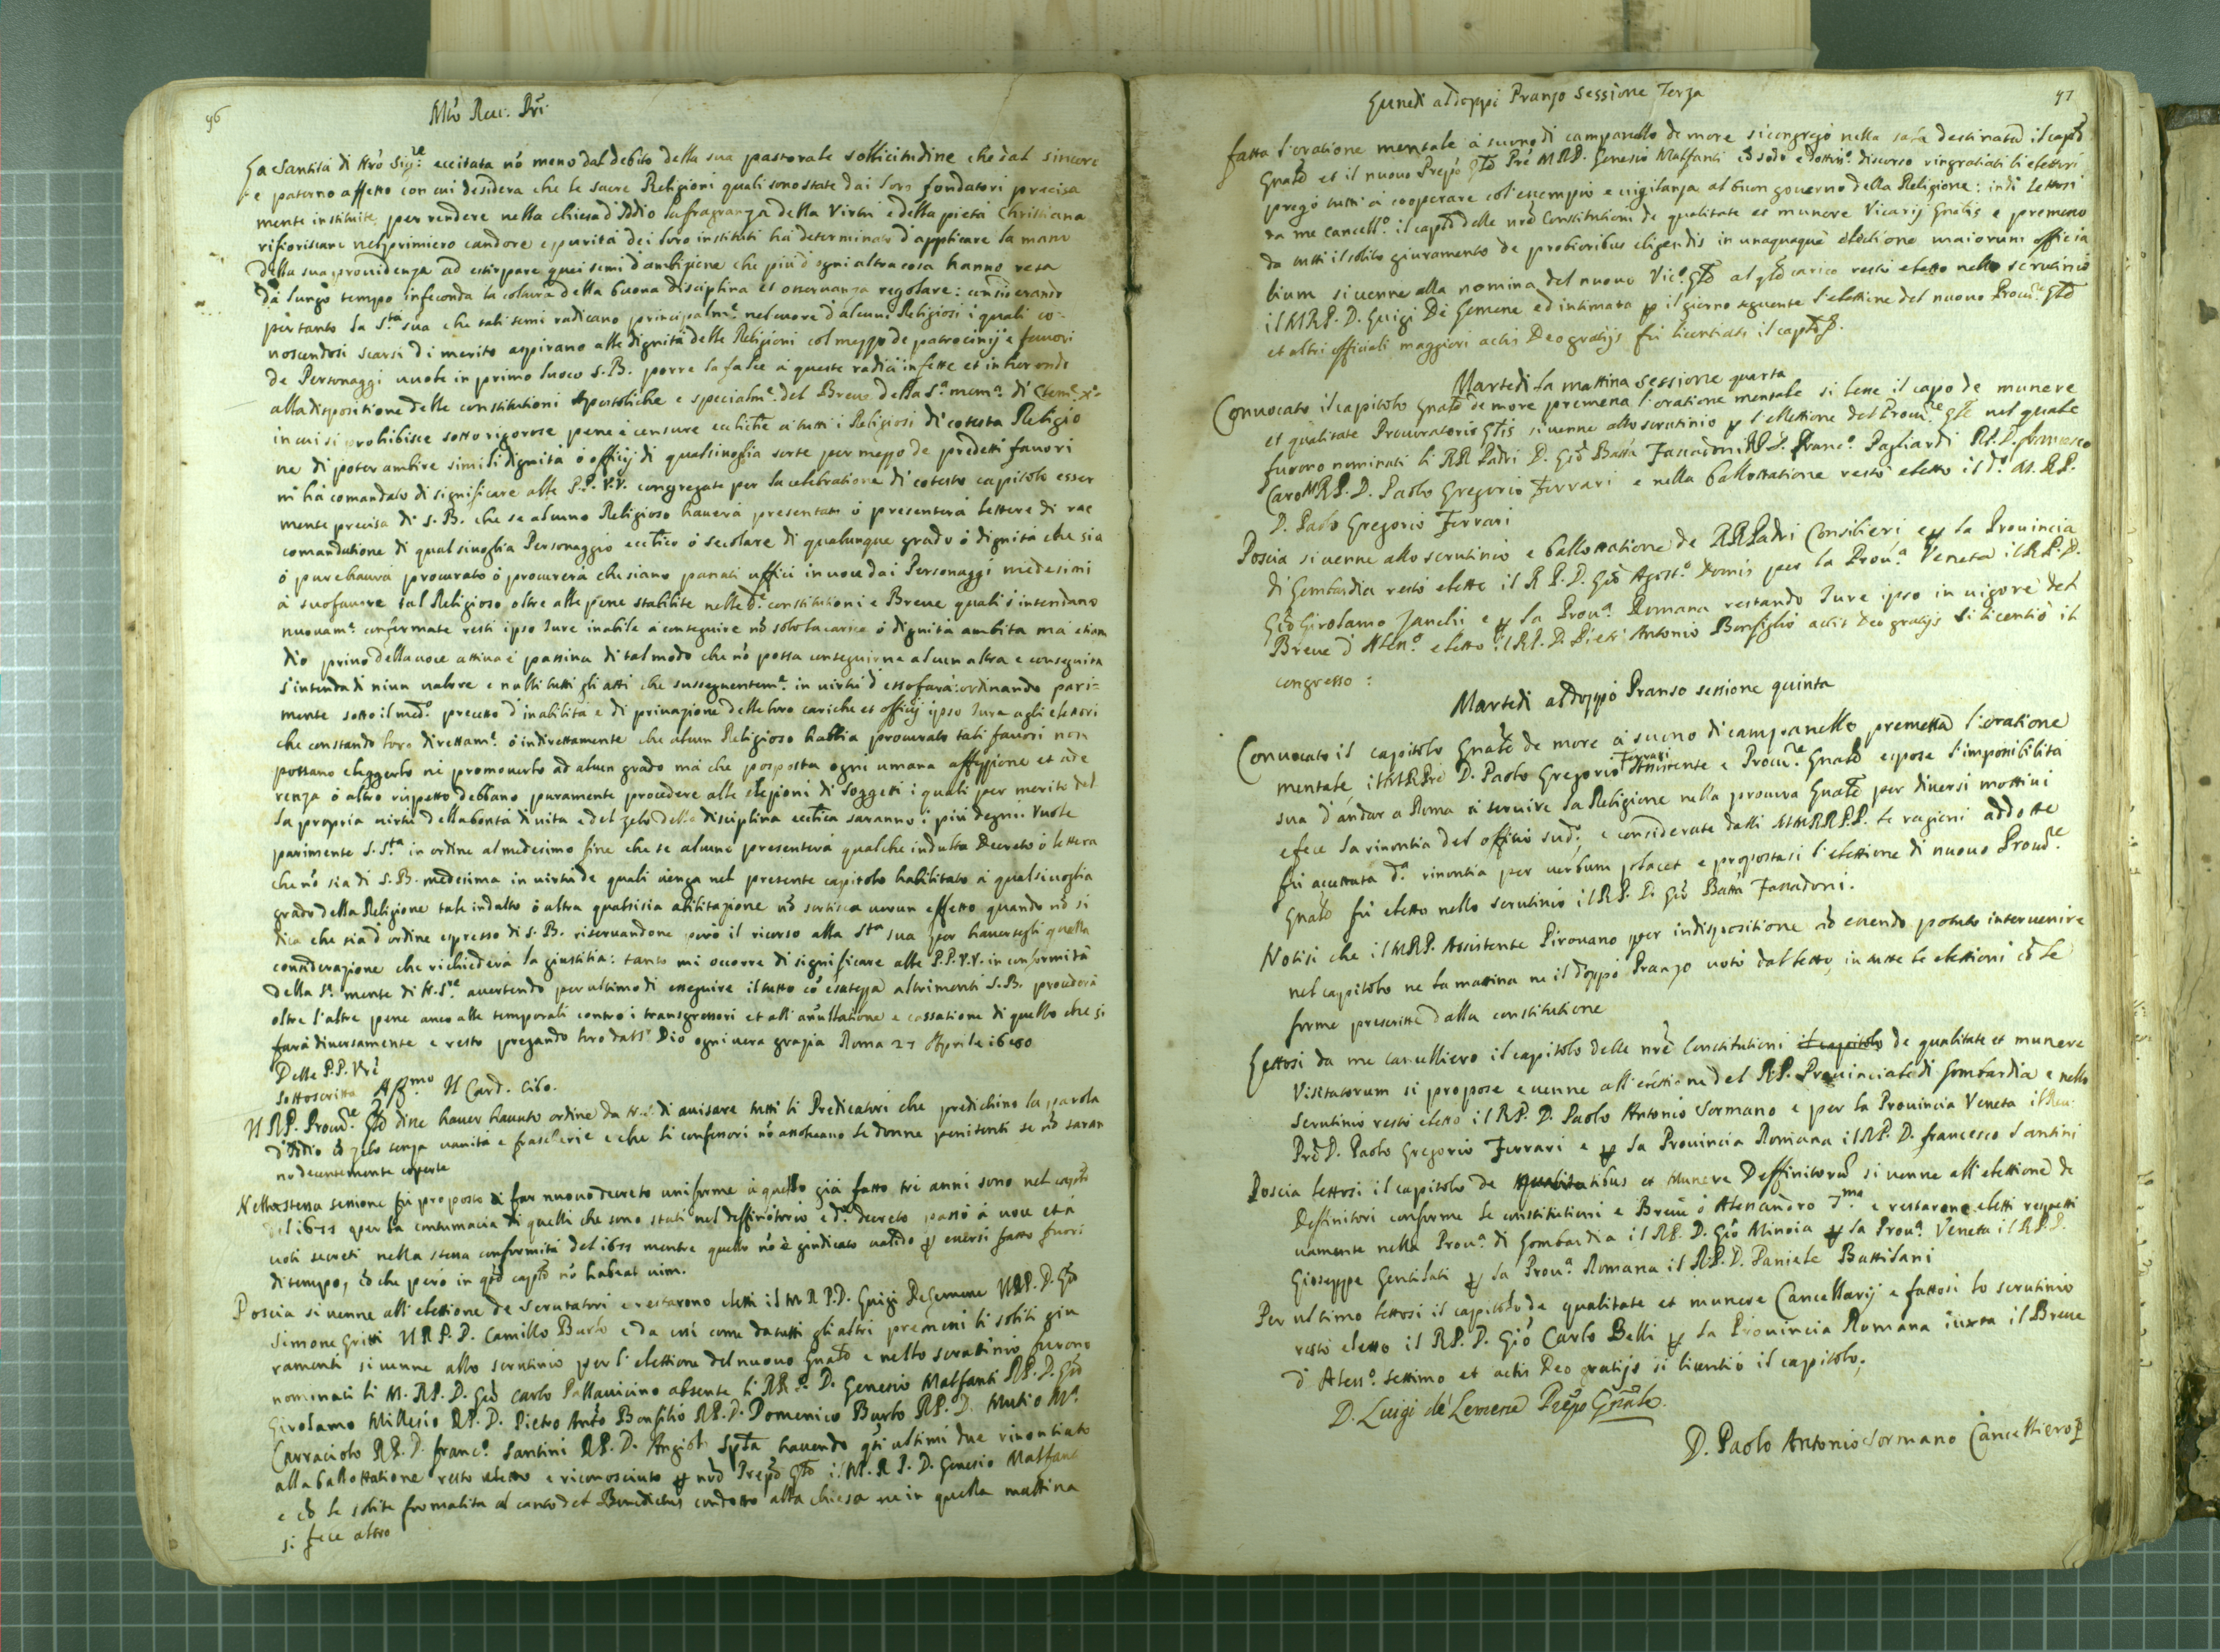 96
Mto Reu: Pri
La Santità di Nro Sigre eccitata nõ meno dal debito della sua pastorale sollicitudine che dal sincero
e paterno affetto con cui desidera che le sacre Religioni quali sono state dai loro fondatori precisa
mente instituite per rendere nella chiesa d'Iddio la fragranza della Virtù e della pietà Christiana
rifioriscano nel primiero candore e purità dei loro instituti hà determinato d'applicare la mano
della sua providenza ad estirpare quei semi d'ambizione che più d'ogni altra cosa hanno resa
da lungo tempo infeconda la coltura della buona disciplina et osseruanza regolare: considerando
per tanto la Sta sua che tali semi radicano principalme nel cuore d'alcuni Religiosi i quali co-
noscendosi scarsi di merito aspirano alle dignità delle Religioni col mezzo de patrocinij e fauori
de Personaggi uuole in primo luoco S.B. porre la falce à queste radici infette et inherendo
alla disposizione delle constitutioni Apostoliche e specialme del Breue della Sa mema di Cleme Xo
in cui si prohibisce sotto rigorose pene e censure ecclitiche a tutti i Religiosi di cotesta Religio
ne di poter ambire simili dignità ò officij di qualsiuoglia sorte per mezzo de predetti fauori
m'hà comandato di significare alle P.P. V.V. congregate per la celebratione di cotesto capitolo esser
mente precisa di S.B. che se alcuno Religioso hauerà presentati ò presenterà lettere di rac
comandatione di qualsiuoglia Personaggio eccltico ò secolare di qualunque grado ò dignità che sia
ò pure haurà procurato ò procurerà che siano passati uffici in uoce dai Personaggi medesimi
à suo fauore tal Religioso oltre alle pene stabilite nelle de constitutioni e Breue quali s'intendano
nuouame confermate resti ipso Iure inabile a conseguire nõ solo la carica ò dignità ambita ma etiam
dio priuo della uoce attiua e passiua di tal modo che nõ possa conseguirne alcun altra e conseguita
s'intenda di niun ualore e nulli tutti gli atti che susseguenteme in uirtù d'essa farà: ordinando pari=
mente sotto il medo precetto d'inabilità e di priuazione delle loro cariche et officij ipso Iure agli elettori
che constando loro direttame ò indirettamente che alcun Religioso habbia procurato tali fauori non
possano eleggerlo ne promouerlo ad alcun grado mà che posposta ogni umana affezzione et ade
renza ò altro rispetto debbano puramente procedere alle elezioni di Soggetti i quali per merito del
la propria uirtù della bontà di uita e del zelo della disciplina eccltica saranno i più degni. Vuole
parimente S. Sta in ordine al medesimo fine che se alcuno presenterà qualche indulto Decreto ò lettera
che nõ sia di S.B. medesima in uirtù de quali uenga nel presente capitolo habilitato à qualsiuoglia
grado della Religione tale indulto ò altra qualsisia abilitazione nõ sortisca uerun effetto quando nõ si
dica che sia d'ordine espresso di S.B. riseruandone però il ricorso alla Sta sua per hauersegli quella
considerazione che richiederà la giustitia: tanto mi occorre di significare alle P.P. V.V. in conformità
della Sa mente di N.Sre auertendo per ultimo di esseguire il tutto cõ esatezza altrimenti S.B. prouderà
oltre l'altre pene anco alle temporali contro i transgressori et all'anullatione e cassatione di quello che si
farà diuersamente e resto pregando loro dal S. Dio ogni uera grazia Roma 27 Aprile 1680
Delle P.P. Vre
Sottoscritta Affmo Il Card. Cibo.
Il R.P. Procure Gle disse hauer hauuto ordine da N.S. di auisare tutti li Predicatori che predichino la parola
d'Iddio cõ zelo senza uanità e frascherie e che li confessori nõ ascoltano le donne penitenti se nõ saran
no decentemente coperte
Nella stessa sessione fù proposto di far nuouo decreto uniforme à quello già fatto trè anni sono nel caplo
del 1677 per la contumacia di quelli che sono stati nel deffinitorio e do decreto passò à uoce et à
uoti secreti nella stessa conformità del 1677 mentre quello nõ è giudicato ualido p essersi fatto fuori
di tempo, cõ che però in qto caplo nõ habeat uim.
Poscia si uenne all'elettione de Scrutatori e restarono eletti il M.R.P.D. Luigi De Lemene Il R.P.D. Gio
Simone Gritti Il R.P.D. Camillo Burlo e da essi come da tutti gli altri premessi li soliti giu
ramenti si uenne allo scrutinio per l'elettione del nuouo Gnale e nello scrutinio furono
nominati li M.R.P.D. Gio Carlo Pallauicino absente li R.R.P. D. Genesio Malfanti R.P.D. Gio
Girolamo Millesio R.P.D. Pietro Anto Bonfilio R.P.D. Domenico Burlo R.P.D. Mutio Ma
Carraciolo R.P.D. franco Santini R.P.D. Angiol Spla hauendo gli ultimi due rinontiato
alla ballottatione restò eletto e riconosciuto p nro Prepto Gle il M.R.P.D. Genesio Malfanti
e cõ le solite formalità al canto del Benedictus condotto alla chiesa ne in quella mattina
si fece altro
97
Lunedi al doppò Pranzo Sessione Terza
fatta l'oratione mentale à suono di campanello de more si congregò nella sala destinata il caplo
Gnale et il nuouo Prepo Gle Pre M.R.P. Genesio Malfanti cõ sodo e dottiso discorso ringratiati li elettori
pregò tutti à cooperare col'essempio e uigilanza al buon gouerno della Religione: indi lettosi
da me Cancello il caplo delle nre Constitutioni de qualitate et munere Vicarij Gnalis e premesso
da tutti il solito giuramento de probioribus eligendis in unaquaque electione maiorum officia
lium si uenne alla nomina del nuouo Vico Gle al qle carico restò eletto nello scrutinio
il M.R.P. D. Luigi De Lemene ed intimata p il giorno seguente l'elettione del nuouo Procure Gle
et altri officiali maggiori actis Deo gratijs fù licentiato il caplo.
Martedi la mattina Sessione quarta
Conuocato il capitolo Gnale de more premessa l'oratione mentale si lesse il capo de munere
et qualitate Procuratoris Glis si uenne allo scrutinio p l'ellettione del Procure Gle nel quale
furono nominati li RR Padri D. Gio Batta Fassadoni R.P.D. Franco Pagliardi R.P.D. francesco
Caro M.R.P.D. Paolo Gregorio Ferrari e nella ballottatione restò eletto il do M.R.P.
D. Paolo Gregorio Ferrari
Poscia si uenne allo scrutinio e ballottatione de RR Padri Consilieri e p la Prouincia
di Lombardia restò eletto il R.P.D. Gio Agosto Domis per la Proua Veneta il R.P.D.
Gio Girolamo Zanchi e p la Proua Romana restando Iure ipso in uigore del
Breue d'Alesso eletto il R.P.D. Pietro Antonio Bonfiglio actis Deo gratijs si licentiò il
congresso:
Martedi al doppò Pranso sessione quinta
Conuocato il capitolo Gnale de more à suono di campanello premessa l'oratione
mentale il M.R.Pre D. Paolo Gregorio Ferrari Assistente e Procure Gnale espose l'impossibilità
sua d'andar a Roma à seruire la Religione nella procura Gnale per diuersi mottiui
e fece la rinontia del offitio sudo; e considerate dalli MM.RR.P.P. le ragioni addotte
fù accettata da rinontia per uerbum placet e propostasi l'elettione di nuouo Procure
Gnale fù eletto nello scrutinio il R.P. D. Gio Batta Fassadoni.
Notisi che il M.R.P. Assistente Pirouano per indispositione nõ essendo potuto interuenire
nel capitolo ne la mattina ne il doppò Pranzo uotò dal letto, in tutte le elettioni cõ le
forme prescritte dalla constitutione
Lettosi da me cancelliero il capitolo delle nre Constitutioni il capitolo de qualitate et munere
Visitatorum si propose e uenne all'elettione del R.P. Prouinciale di Lombardia e nello
Scrutinio restò eletto il R.P. D. Paolo Antonio Sormano e per la Prouincia Veneta il Reu:
Pre D. Paolo Gregorio Ferrari e p la Prouincia Romana il R.P. D. francesco Santini
Poscia lettosi il capitolo de qualitatibus et Munere Deffinitorũ si uenne all'elettione de
Deffinitori conforme le constitutioni e Breue d'Alessandro 7mo e restarono eletti respetti
uamente nella Proua di Lombardia il R.P. D. Gio Minoia p la Proua Veneta il R.P.D.
Gioseppe Gentilati p la Proua Romana il R.P.D. Daniele Battilani
Per ultimo lettosi il capitolo de qualitate et munere Cancellarij e fattosi lo scrutinio
restò eletto il R.P.D. Gio Carlo Belli p la Prouincia Romana iuxta il Breue
d'Alesso settimo et actis Deo gratijs si licentiò il capitolo;
D. Luigi de Lemene Prepo Gnale.
D. Paolo Antonio Sormano Cancelliero